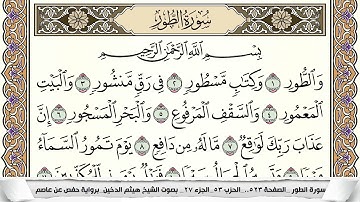 سُورَةُ الطُّورِ
بِسْمِ اللَّهِ الرَّحْمَٰنِ الرَّحِيمِ
وَالطُّورِ ۝١ وَكِتَابٍ مَّسْطُورٍ ۝٢ فِي رَقٍّ مَّنشُورٍ ۝٣ وَالْبَيْتِ
الْمَعْمُورِ ۝٤ وَالسَّقْفِ الْمَرْفُوعِ ۝٥ وَالْبَحْرِ الْمَسْجُورِ ۝٦ إِنَّ
عَذَابَ رَبِّكَ لَوَاقِعٌ ۝٧ مَّا لَهُ مِن دَافِعٍ ۝٨ يَوْمَ تَمُورُ السَّمَاءُ
سورة الطور _الصفحة ٥٢٣_.. الحزب ٥٣_الجزء ٢٧_ بصوت الشيخ هيثم الدخين_برواية حفص عن عاصم